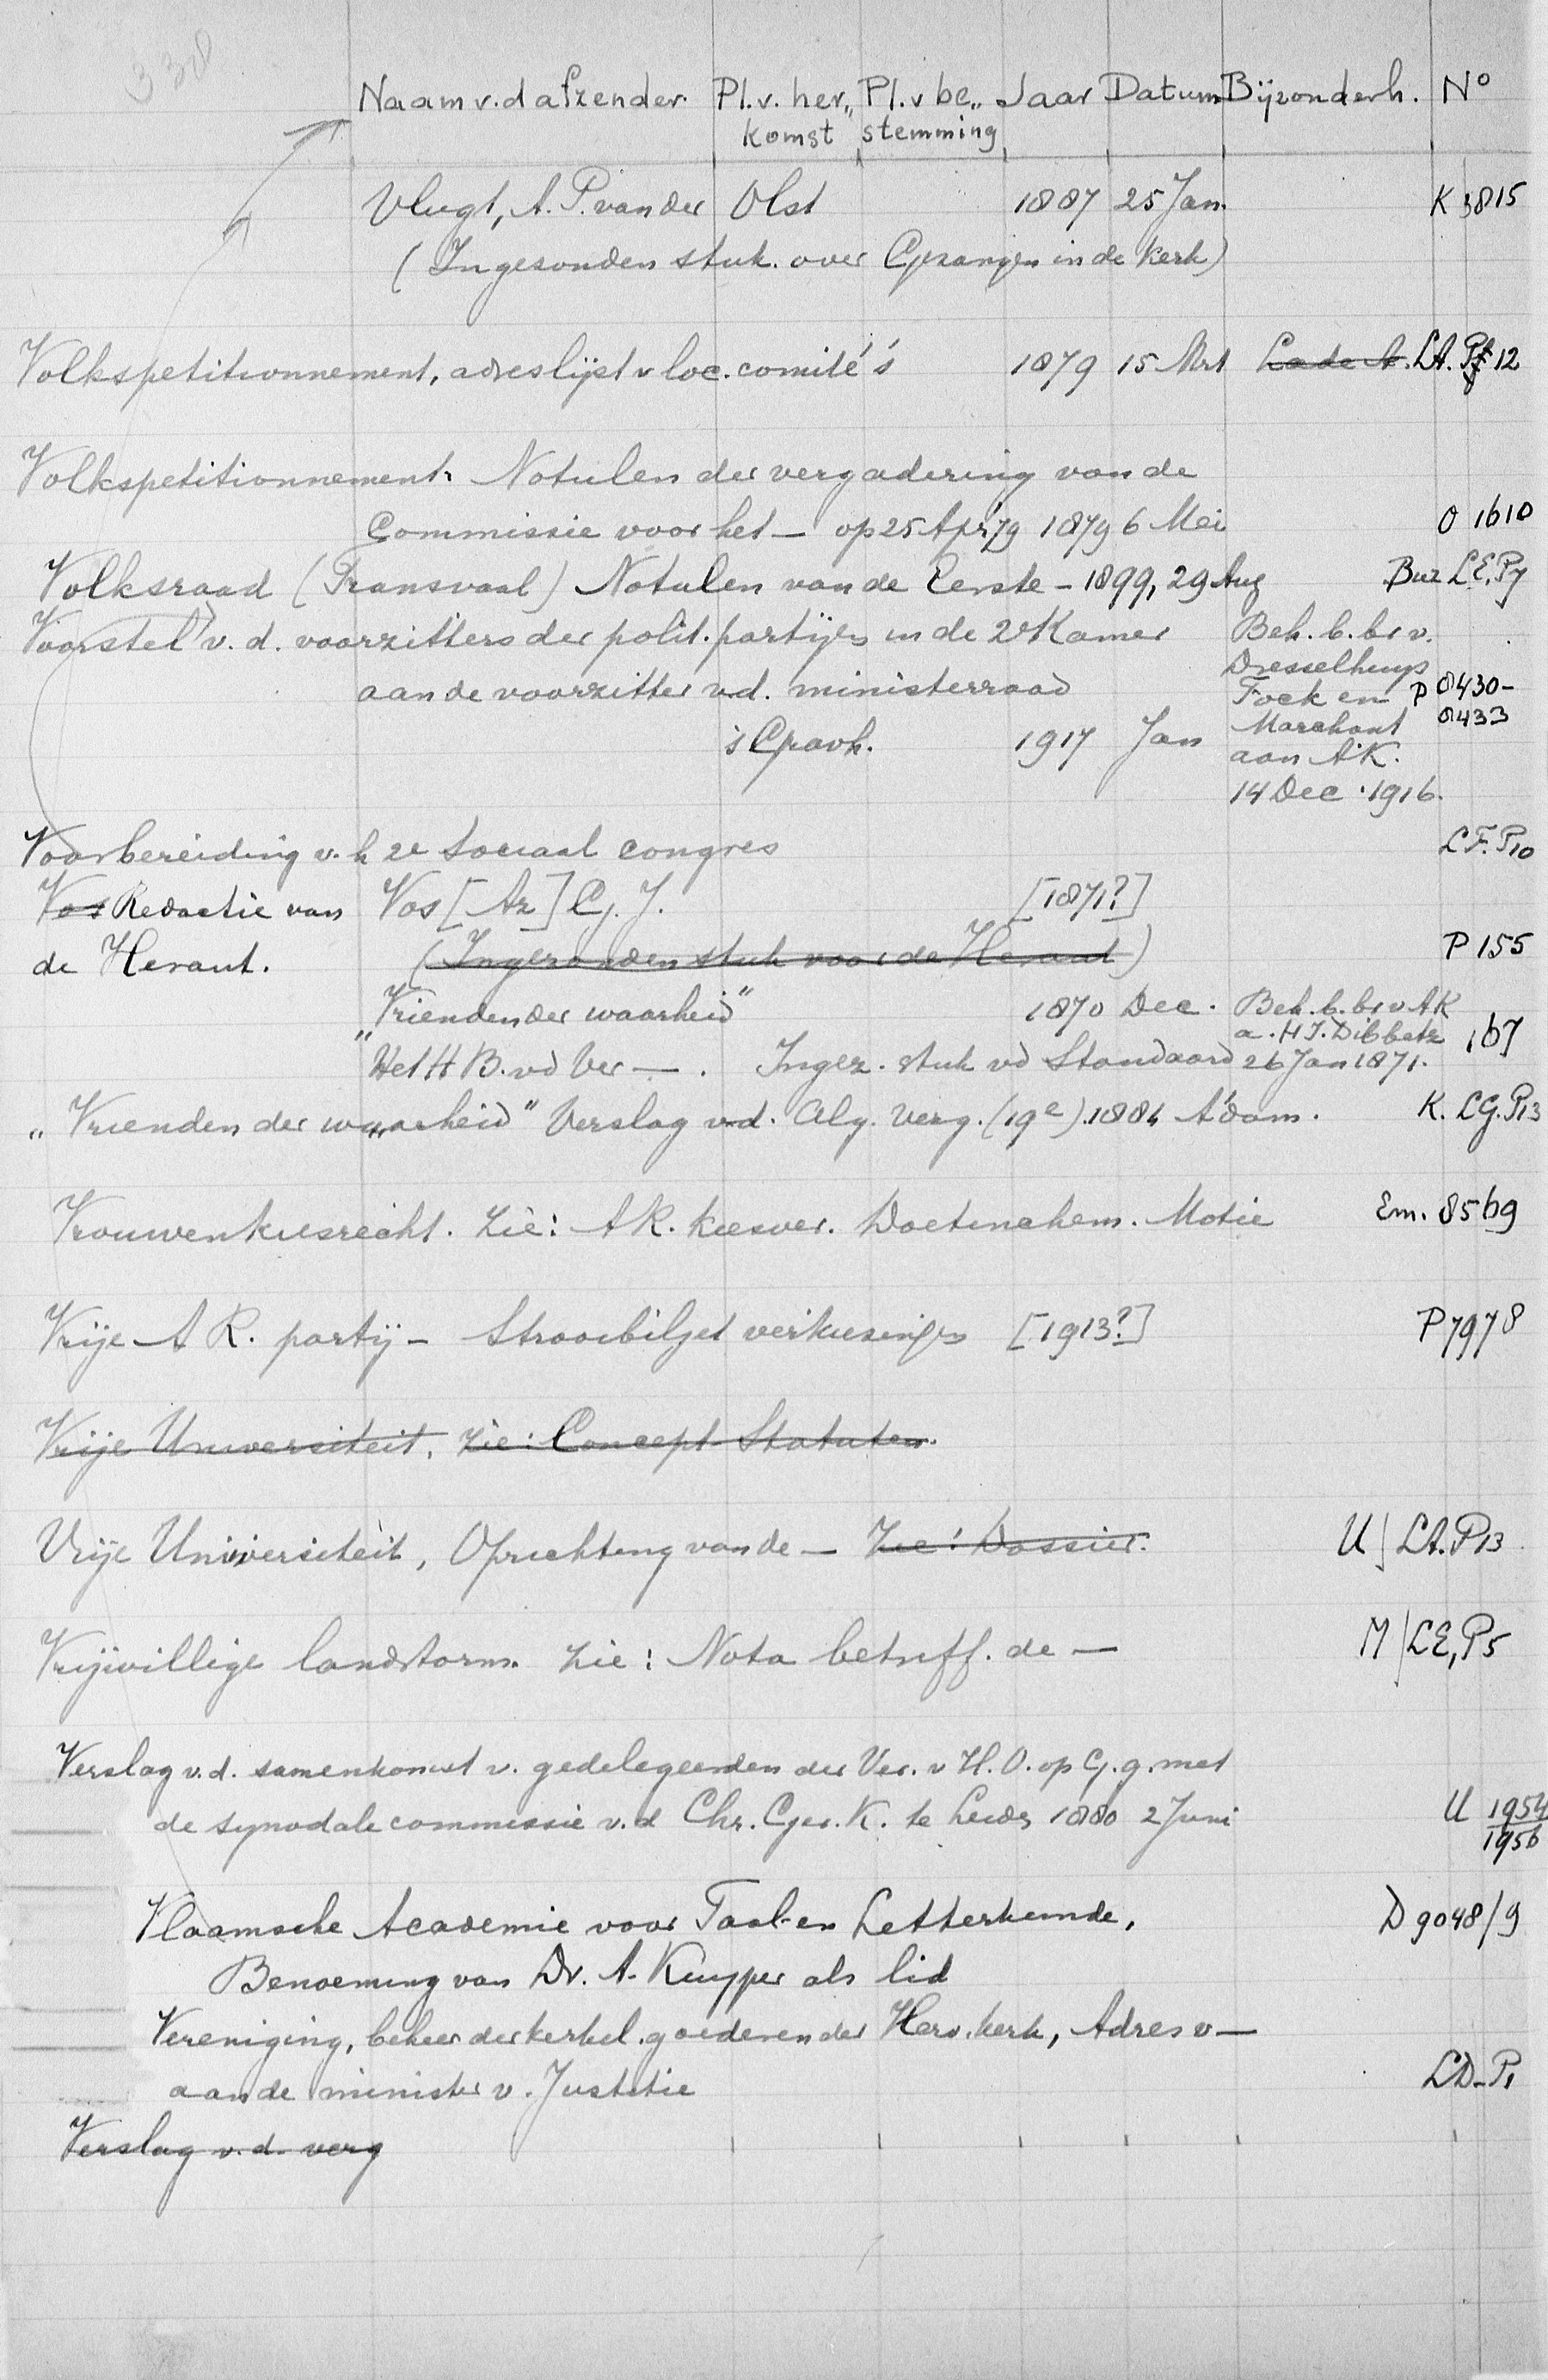 338
Naam v. d afzender. Pl. v. her„ Pl. v be„ Jaar Datum Bijzonderh. No
komst stemming
Vlugt, A. P. van der Olst 1887 25 Jan. K 3815
(Ingezonden stuk over Gezangen in de Kerk)
Volkspetitionnement, adreslijst v loc. comité's 1879 15 Mrt Lade A. LA. P 12
Volkspetitionnement. Notulen der vergadering van de
Commissie voor het — op 25 Apr '79 1879 6 Mei O 1610
Volksraad (Transvaal) Notulen van de Eerste — 1899, 29 Aug Buz L.E, P7
Voorstel v. d. voorzitters der polit. partijen in de 2e Kamer Beh. b. br v.
Dresselhuys
aan de voorzitter v.d. ministerraad Fock en P 8430-
's Gravh. 1917 Jan Marchant 8433
aan AK.
14 Dec. 1916.
Voorbereiding v. h 2e Sociaal congres L F. P10
Vos Redactie van Vos [Az] G. J. [1871?]
de Heraut. (Ingezonden stuk voor de Heraut) P 155
„Vrienden der waarheid" 1870 Dec. Beh. b. br v AK
a. H J. Dibbetz 167
Het H B. vd Ver — . Ingez. stuk vd Standaard 26 Jan 1871.
„Vrienden der waarheid" Verslag v.d. Alg. Verg. (19e) 1884 A'dam. K. LG. P13
Vrouwenkiesrecht. Zie: AR. kiesver. Doetinchem. Motie Em. 8569
Vrije A R. partij — Strooibiljet verkiezingen [1913?] P 7978
Vrije Universiteit, Zie: Concept-Statuten.
Vrije Universiteit, Oprichting van de — Zie: Dossier. U | LA. P13
Vrijwillige landstorm. Zie: Nota betreff. de — M | LE, P5
Verslag v.d. samenkomst v. gedelegeerden der Ver. v H. O. op G. g. met
de synodale commissie v.d Chr. Ger. K. te Leids 1880 2 Juni U 1954
1956
Vlaamsche Academie voor Taal- en Letterkunde, D 9048/9
Benoeming van Dr. A. Kuyper als lid
Vereniging, beheer der kerkel. goederen der Herv. kerk, Adres v —
aan de minister v. Justitie LD-P1
Verslag v. d. verg